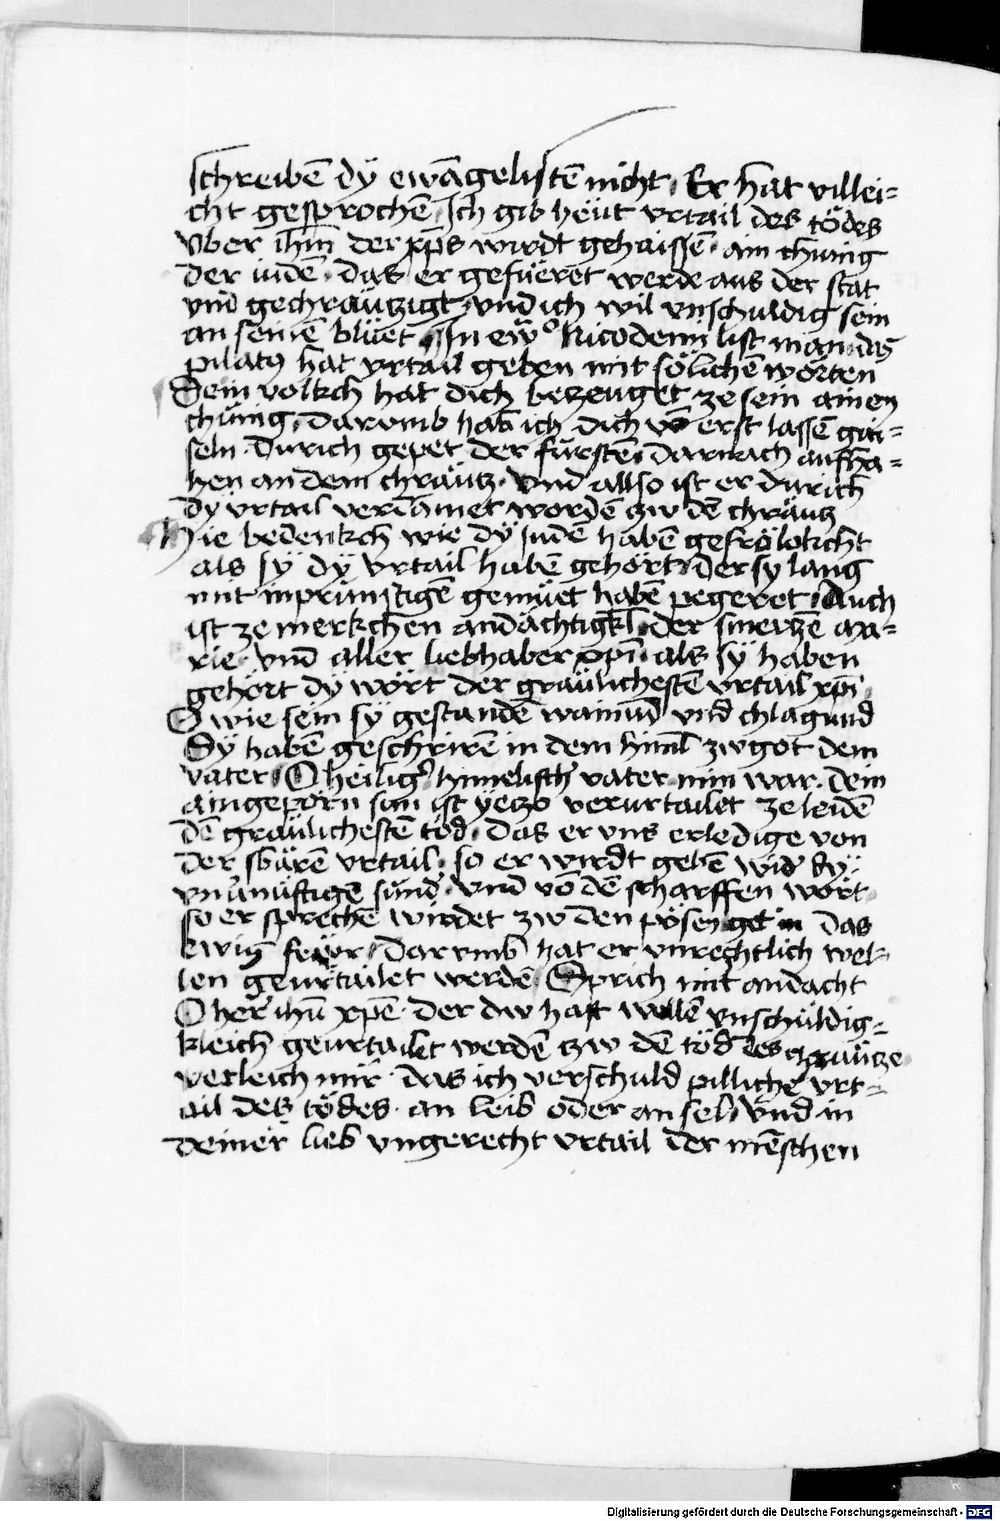 schreibē dÿ ewāgelistē nicht Er hat villei=
cht gesprochē Ich gib hëut vrtail des tödes
vber ihm̄ der xp̄s wirdt gehaissē am chünig
der iudē das er gefüeret werde aus der stat
vnd̄ gechräutzigt vnd ich wil vnschuldig sein
an seinē blüet In ew̄o Nicodemi list man das
pilatus hat vrtail geben mit sölichē wörten
Dein volkch hat dich bezeuget ze sein ainen
chünig darvmb hab ich dich vō erst lassē gai=
seln durich gepet der fürstē darnach aufha=
hen an dem chräutz vnd allso ist er durich
dy vrtail verdāmet wordē zw dē chräutz
Hie bedenkch wie dÿ Judē habē gefrölokcht
als sÿ dÿ vrtail habē gehört der sy lang
mit inprünstigē gemüet habē pegeret Auch
ist ze merkchen andächtigkl der smertzē Ma=
rie vnd̄ aller liebhaber xp̄i als sÿ haben
gehört dÿ wört der gräulichestē vrtail xp̄i
O wie sein sÿ gestandē wainūd vnd chlagund
Sÿ habē geschrirē in dem himl zw got dem
vater O heilig' himelisch' vater nim war dein
aingeporn sun ist yeczo verurtailet ze leidē
dē gräulichestē tod das er vns erledige von
der swärē vrtail so er wirdt gebē wid' dÿ
vn'nünftigē sünd' vnd vō dē scharffen wört
so er sprechē wirdet zw den pösen get in das
ewig feẅr darvmb hat er vnrechtlich wel=
len geurtailet werdē Sprich mit andacht
O her' ihū xpē der dw hast wellē vnschuldig=
kleich geurtailet werdē zw dē töd des chräutze
verleich mir das ich verschuld pilliche vrt=
ail des tödes an leib oder an sel vnd in
deiner lieb vngerecht vrtail der mēschen
Digitalisierung gefördert durch die Deutsche Forschungsgemeinschaft - DFG